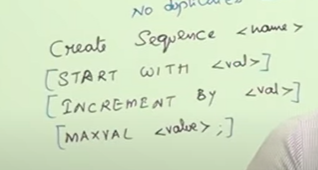 No duplicates
Create Sequence <name>
[START WITH <val>]
[INCREMENT BY <val>]
[MAXVAL <value>;]